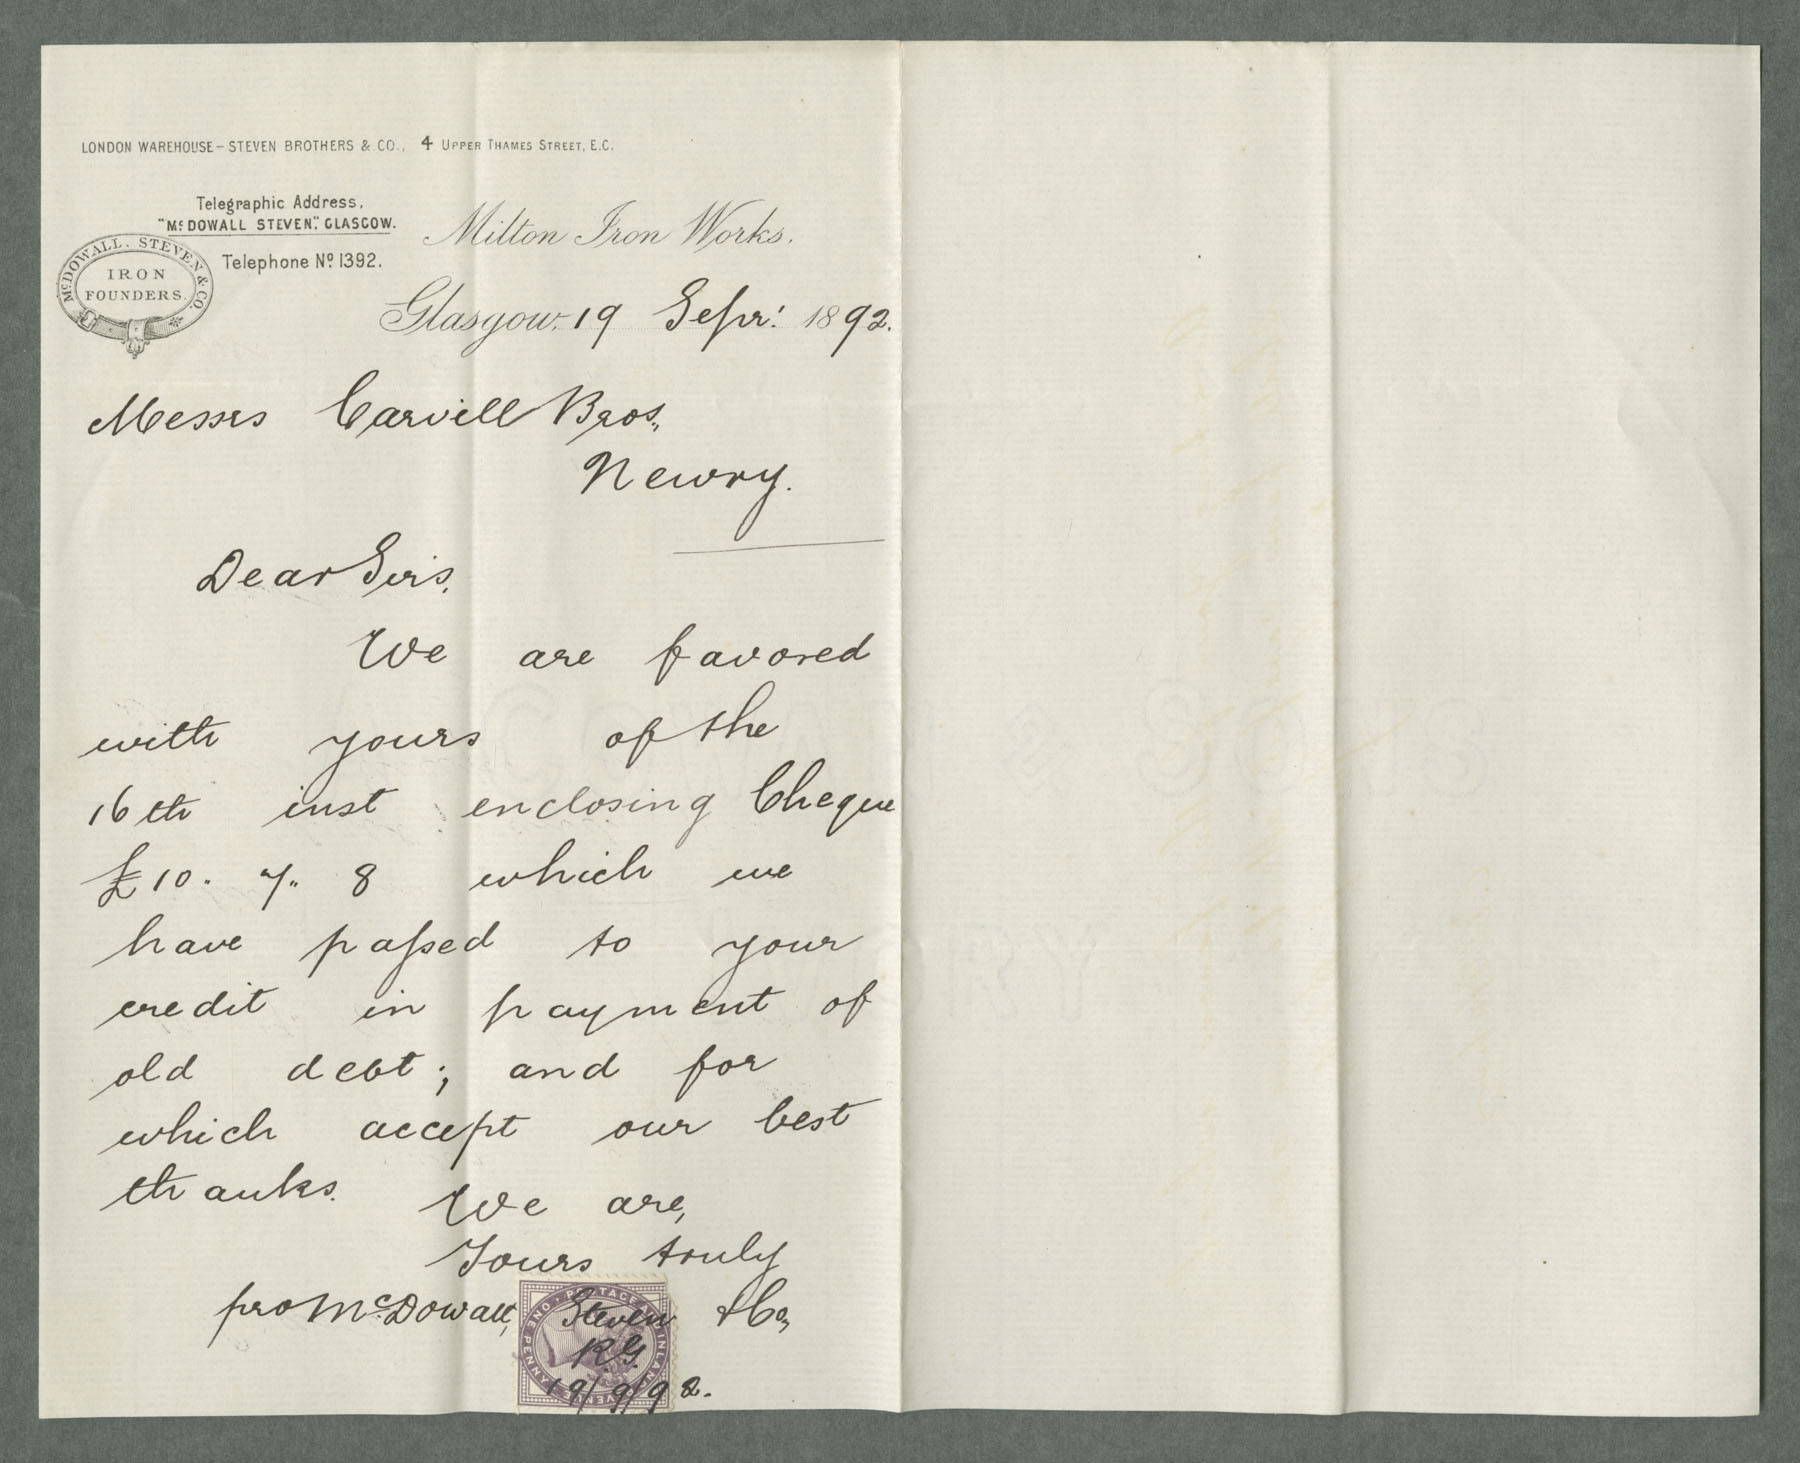 LONDON WAREHOUSE – STEVEN BROTHERS & CO., 4 UPPER THAMES STREET, E.C.
Telegraphic Address,
"McDOWALL STEVEN", GLASGOW.
Telephone No 1392.
McDOWALL, STEVEN & CO.
IRON
FOUNDERS.
Milton Iron Works.
Glasgow, 19 Sepr: 1892.
Messrs Carvill Bros.,
Newry.
Dear Sirs,
We are favored
with yours of the
16th inst enclosing Cheque
£10. 7. 8 which we
have passed to your
credit in payment of
old debt; and for
which accept our best
thanks.
We are,
Yours truly
pro McDowall, Steven & Co,
R.G.
19/9/92.
POSTAGE AND INLAND REVENUE ONE PENNY